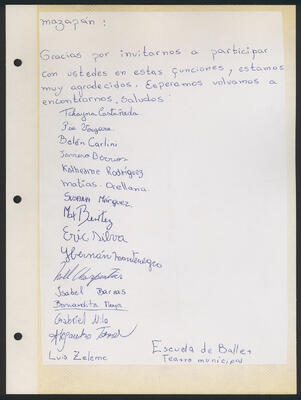 mazapán :
Gracias por invitarnos a participar
con ustedes en estas funciones, estamos
muy agradecidos. Esperamos volvamos a
encontrarnos, saludos
Tchayna Castañada
Pía Vergara
Belén Carlini
Barrios
Katherine Rodríguez
matías Orellana
Susana Márquez
Max Benítez
Eric Silva
Hernán montenegro
Carpentier
Isabel Barras
Bernardita
Gabriel Milo
Alejandro
Luis Zeleme
Escuela de Ballet
Teatro municipal